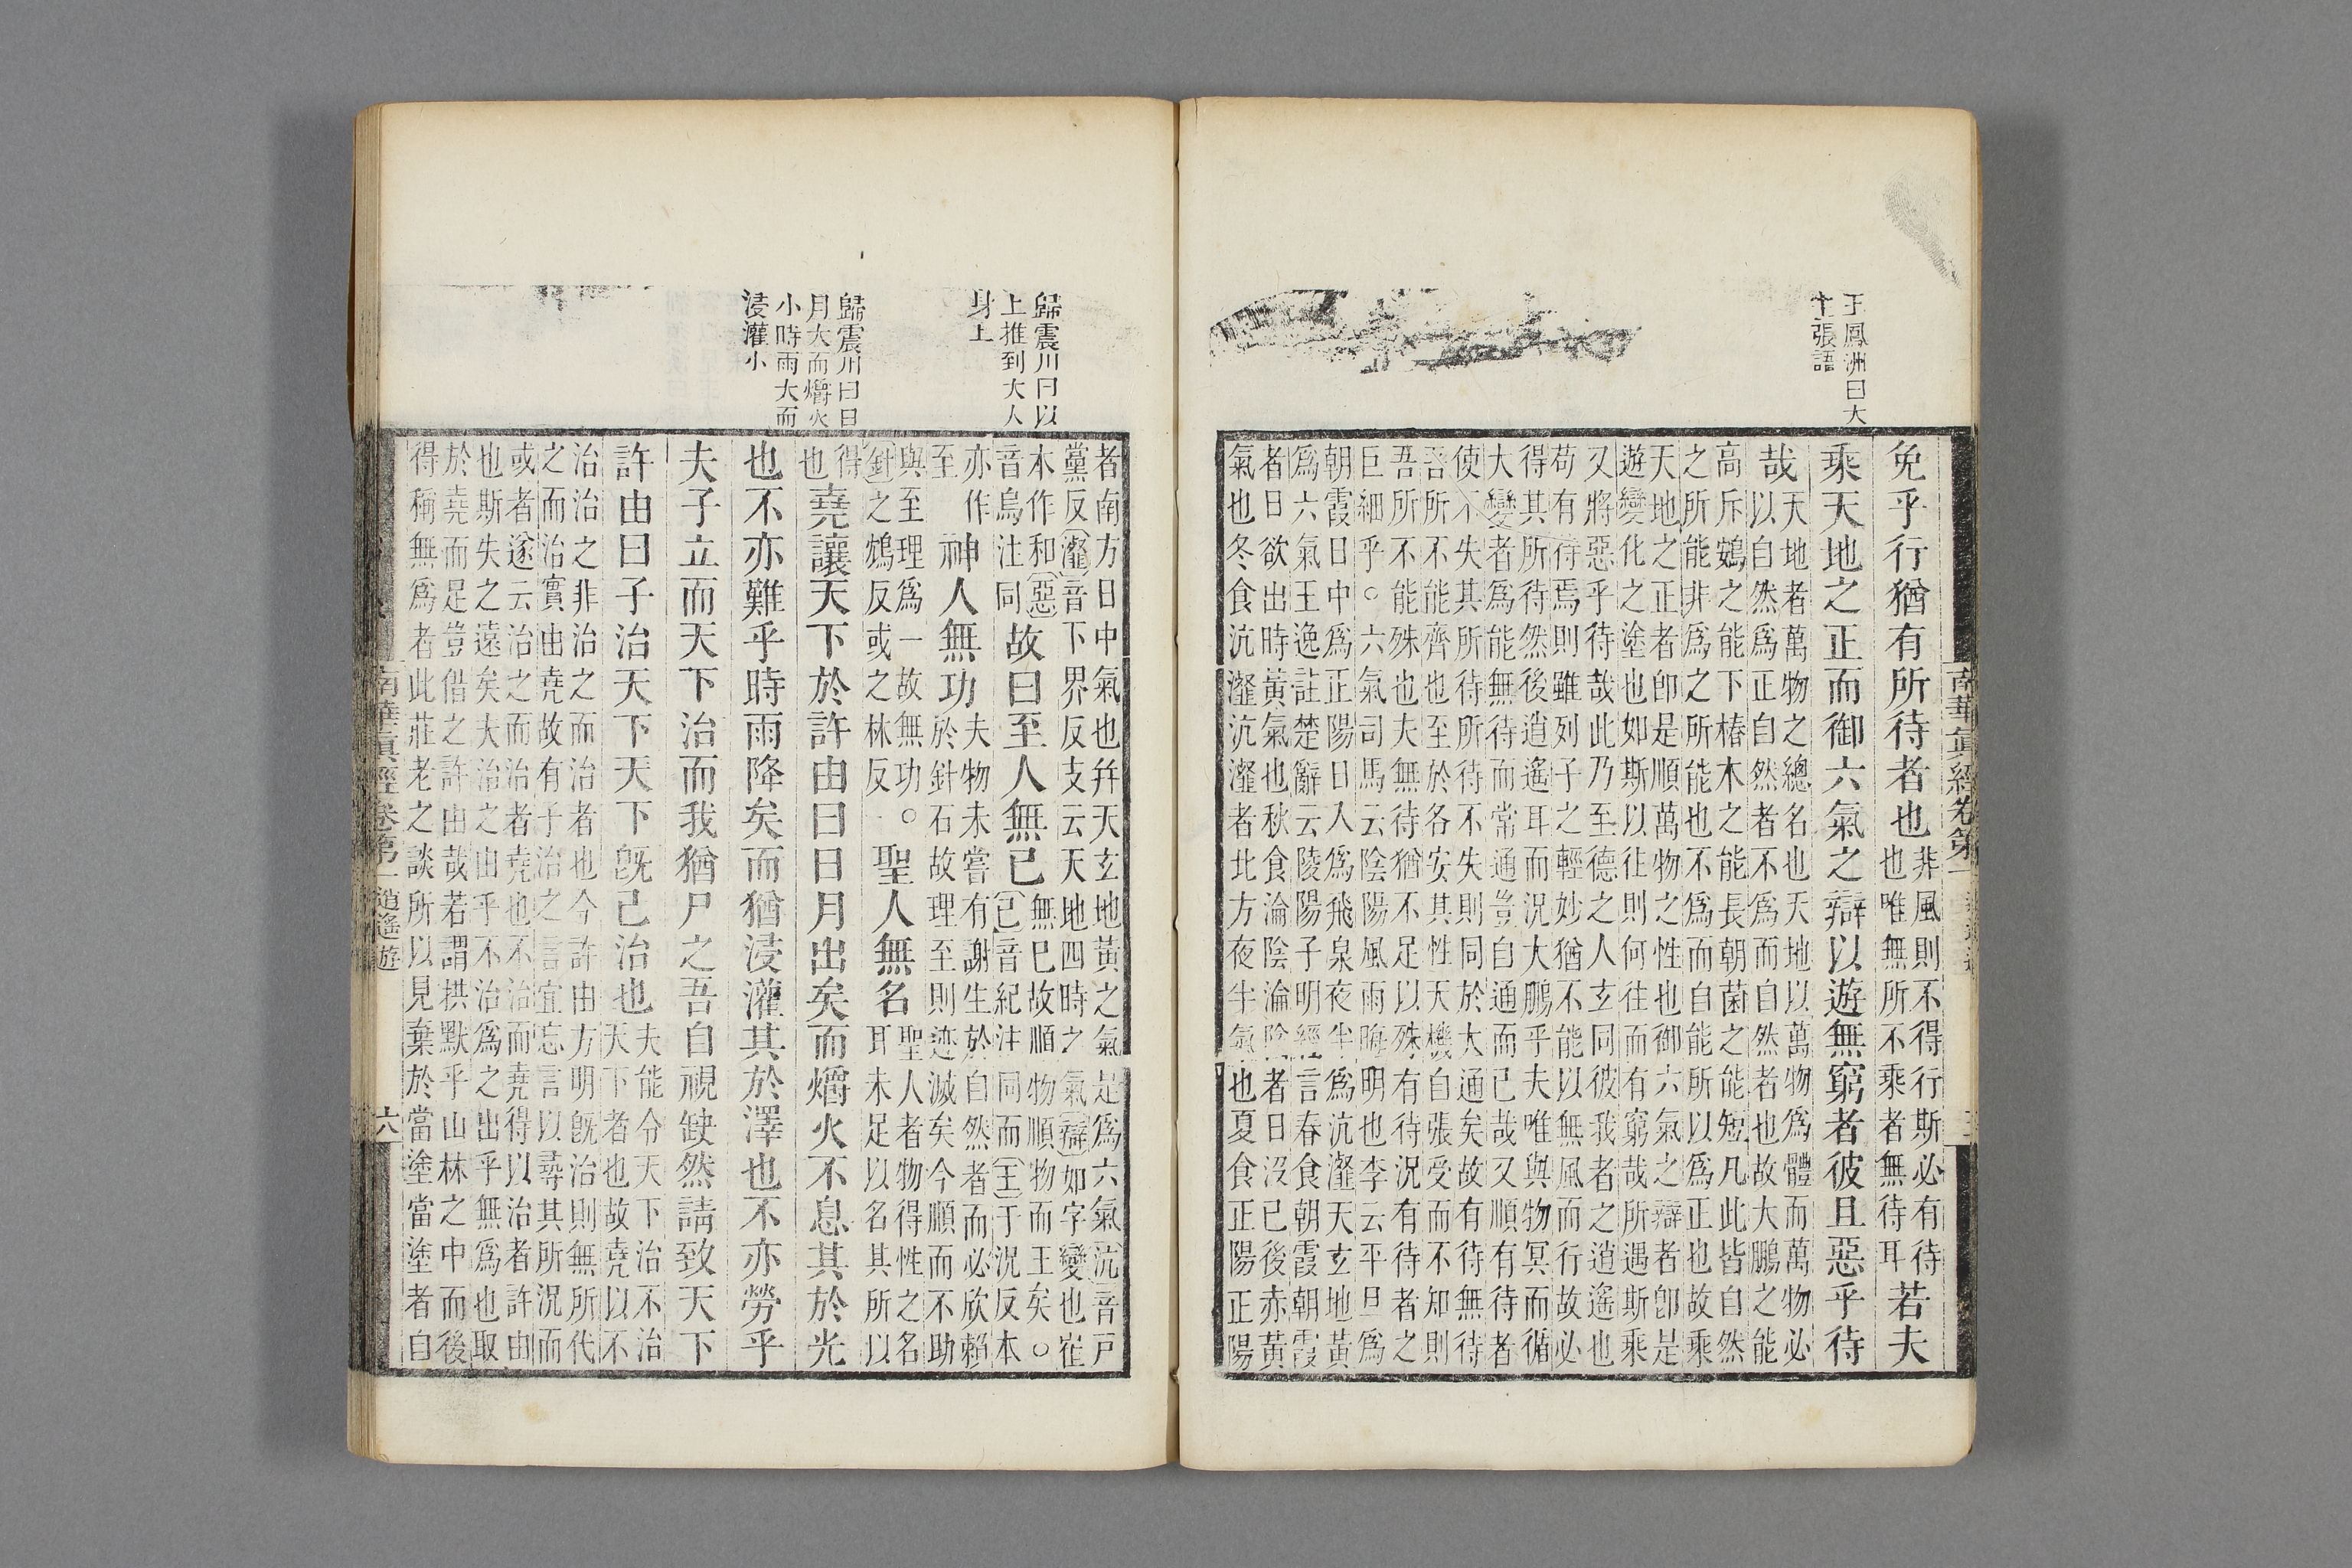 王鳳洲曰大
主張語
免乎行猶有所待者也
非風則不得行斯必有待
也唯無所不乘者無待耳
若夫
乘天地之正而御六氣之辯以遊無窮者彼且惡乎待
哉
天地者萬物之總名也天地以萬物爲體而萬物必
以自然爲正自然者不爲而自然者也故大鵬之能
高斥鴳之能下椿木之能長朝菌之能短凡此皆自然
之所能非爲之所能也不爲而自能所以爲正也故乘
天地之正者卽是順萬物之性也御六氣之辯者卽是
遊變化之塗也如斯以往則何往而有窮哉所遇斯乘
又將惡乎待哉此乃至德之人玄同彼我者之逍遙也
苟有待焉則雖列子之輕妙猶不能以無風而行故必
得其所待然後逍遙耳而況大鵬乎夫唯與物冥而循
大變者爲能無待而常通豈自通而已哉又順有待者
使不失其所待所待不失則同於大通矣故有待無待
吾所不能齊也至於各安其性天機自張受而不知則
吾所不能殊也夫無待猶不足以殊有待況有待者之
巨細乎○六氣司馬云陰陽風雨晦明也李云平旦爲
朝霞日中爲正陽日入爲飛泉夜半爲沆瀣天玄地黃
爲六氣王逸註楚辭云陵陽子明經言春食朝霞朝霞
者日欲出時黃氣也秋食淪陰淪陰者日沒已後赤黃
氣也冬食沆瀣沆瀣者北方夜半氣也夏食正陽正陽
南華眞經卷第一
歸震川曰以
上推到大人
身上
歸震川曰日
月大而爝火
小時雨大而
浸灌小
者南方日中氣也幷天玄地黃之氣是爲六氣沆音戸
黨反瀣音下界反支云天地四時之氣辯如字變也崔
本作和惡
音烏注同
故曰至人無已
無已故順物順物而王矣○
已音紀注同而王于況反本
亦作
至
神人無功
夫物未嘗有謝生於自然者而必欣賴
於針石故理至則迹滅矣今順而不助
與至理爲一故無功○
針之鴆反或之林反
聖人無名
聖人者物得性之名
耳未足以名其所以
得
也
堯讓天下於許由曰日月出矣而爝火不息其於光
也不亦難乎時雨降矣而猶浸灌其於澤也不亦勞乎
夫子立而天下治而我猶尸之吾自視缺然請致天下
許由曰子治天下天下旣已治也
夫能令天下治不治
天下者也故堯以不
治治之非治之而治者也今許由方明旣治則無所代
之而治實由堯故有子治之言宜忘言以尋其所況而
或者遂云治之而治者堯也不治而堯得以治者許由
也斯失之遠矣夫治之由乎不治爲之出乎無爲也取
於堯而足豈借之許由哉若謂拱默乎山林之中而後
得稱無爲者此莊老之談所以見棄於當塗當塗者自
南華眞經卷第一 逍遙遊 六